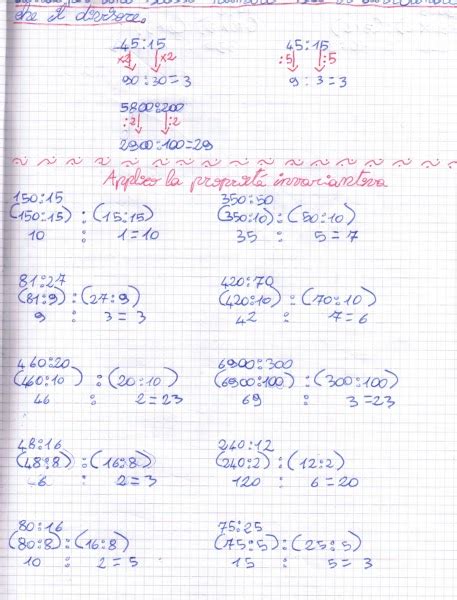 che il divisore.
45:15
×2 ×2
90:30=3
45:15
:5 :5
9:3=3
5800:200
:2 :2
2900:100=29
Applico la proprietà invariantiva
150:15
(150:15):(15:15)
10 : 1=10
350:50
(350:10):(50:10)
35 : 5=7
81:27
(81:9):(27:9)
9 : 3=3
420:70
(420:10):(70:10)
42 : 7=6
460:20
(460:10):(20:10)
46 : 2=23
6900:300
(6900:100):(300:100)
69 : 3=23
48:16
(48:8):(16:8)
6 : 2=3
240:12
(240:2):(12:2)
120 : 6=20
80:16
(80:8):(16:8)
10 : 2=5
75:25
(75:5):(25:5)
15 : 5=3